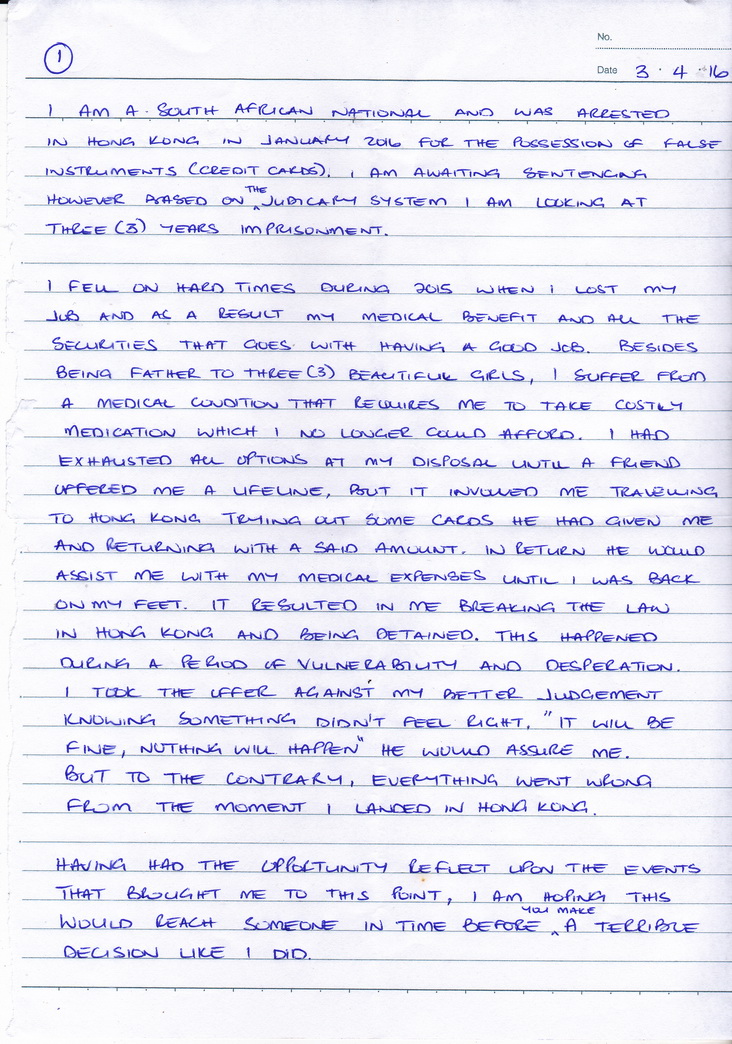 1
No.
Date 3 · 4 · 16
I AM A SOUTH AFRICAN NATIONAL AND WAS ARRESTED
IN HONG KONG IN JANUARY 2016 FOR THE POSSESSION OF FALSE
INSTRUMENTS (CREDIT CARDS). I AM AWAITING SENTENCING
THE
HOWEVER BASED ON ^ JUDICARY SYSTEM I AM LOOKING AT
THREE (3) YEARS IMPRISONMENT.
I FELL ON HARD TIMES DURING 2015 WHEN I LOST MY
JOB AND AS A RESULT MY MEDICAL BENEFIT AND ALL THE
SECURITIES THAT GOES WITH HAVING A GOOD JOB. BESIDES
BEING FATHER TO THREE (3) BEAUTIFUL GIRLS, I SUFFER FROM
A MEDICAL CONDITION THAT REQUIRES ME TO TAKE COSTLY
MEDICATION WHICH I NO LONGER COULD AFFORD. I HAD
EXHAUSTED ALL OPTIONS AT MY DISPOSAL UNTIL A FRIEND
OFFERED ME A LIFELINE, BUT IT INVOLVED ME TRAVELLING
TO HONG KONG TRYING OUT SOME CARDS HE HAD GIVEN ME
AND RETURNING WITH A SAID AMOUNT. IN RETURN HE WOULD
ASSIST ME WITH MY MEDICAL EXPENSES UNTIL I WAS BACK
ON MY FEET. IT RESULTED IN ME BREAKING THE LAW
IN HONG KONG AND BEING DETAINED. THIS HAPPENED
DURING A PERIOD OF VULNERABILITY AND DESPERATION.
I TOOK THE OFFER AGAINST MY BETTER JUDGEMENT
KNOWING SOMETHING DIDN'T FEEL RIGHT. "IT WILL BE
FINE, NOTHING WILL HAPPEN" HE WOULD ASSURE ME.
BUT TO THE CONTRARY, EVERYTHING WENT WRONG
FROM THE MOMENT I LANDED IN HONG KONG.
HAVING HAD THE OPPORTUNITY REFLECT UPON THE EVENTS
THAT BROUGHT ME TO THIS POINT, I AM HOPING THIS
YOU MAKE
WOULD REACH SOMEONE IN TIME BEFORE ^ A TERRIBLE
DECISION LIKE I DID.